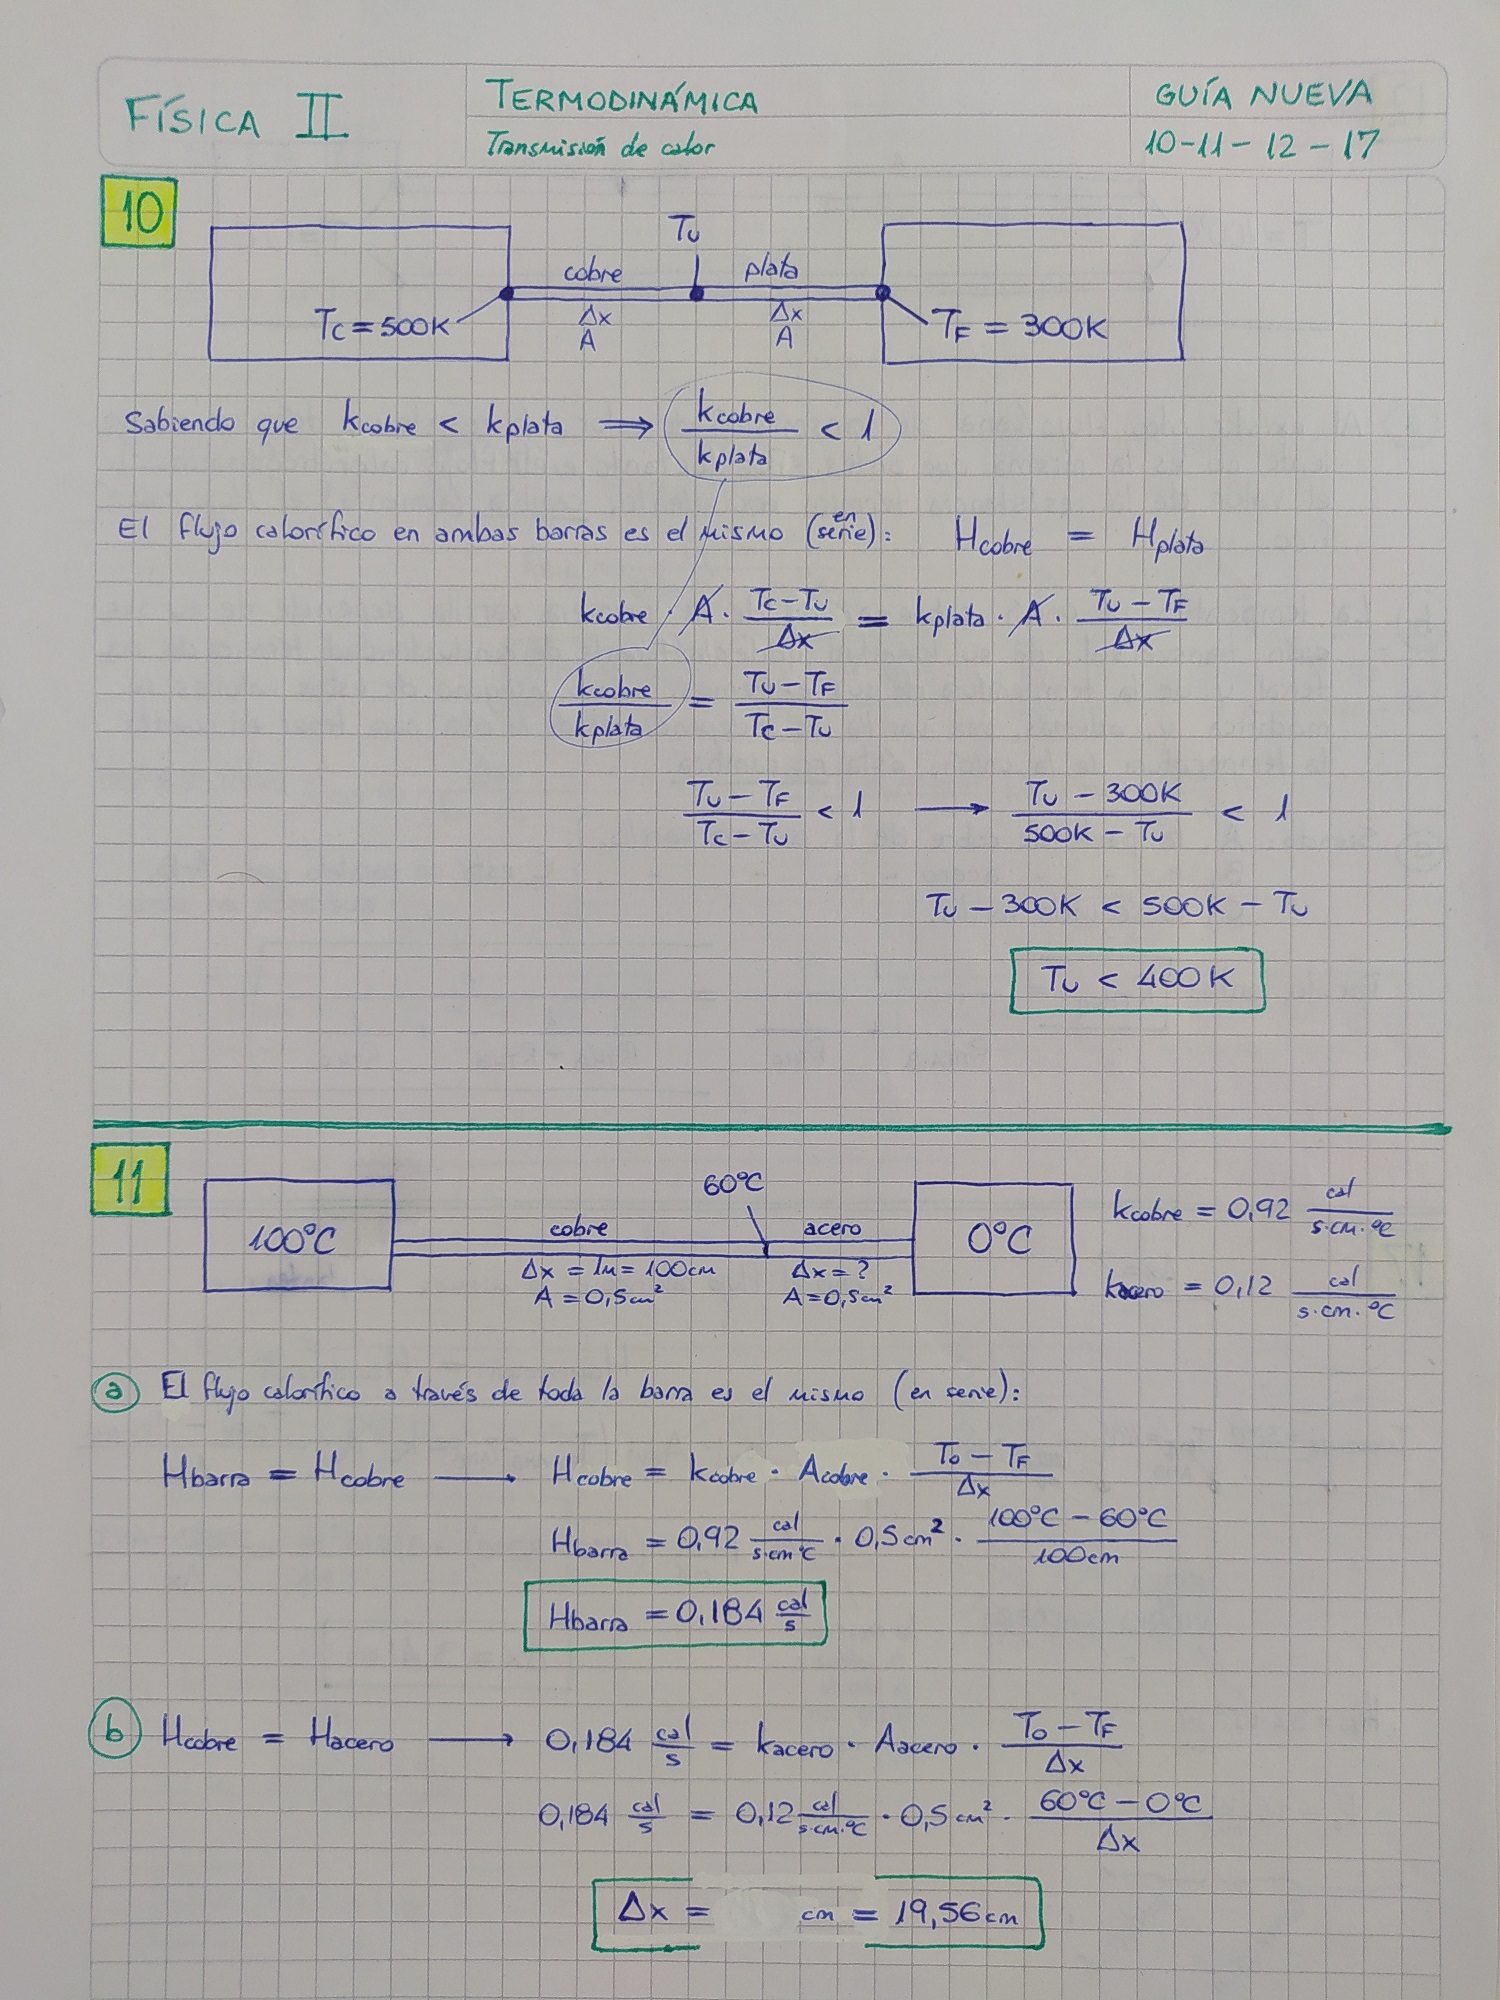 FÍSICA II
TERMODINÁMICA
Transmisión de calor
GUÍA NUEVA
10-11-12-17
10
Tu
cobre plata
Tc = 500K Δx A Δx A TF = 300K
Sabiendo que kcobre < kplata ⟹ kcobre / kplata < 1
El flujo calorífico en ambas barras es el mismo (en serie): Hcobre = Hplata
kcobre · A · (Tc - Tu) / Δx = kplata · A · (Tu - TF) / Δx
kcobre / kplata = (Tu - TF) / (Tc - Tu)
(Tu - TF) / (Tc - Tu) < 1 → (Tu - 300K) / (500K - Tu) < 1
Tu - 300K < 500K - Tu
Tu < 400K
11
60°C
100°C cobre acero 0°C
Δx = 1m = 100cm Δx = ?
A = 0,5cm² A = 0,5cm²
kcobre = 0,92 cal / s·cm·°C
kacero = 0,12 cal / s·cm·°C
a El flujo calorífico a través de toda la barra es el mismo (en serie):
Hbarra = Hcobre → Hcobre = kcobre · Acobre · (To - TF) / Δx
Hbarra = 0,92 cal / s·cm°C · 0,5cm² · (100°C - 60°C) / 100cm
Hbarra = 0,184 cal/s
b Hcobre = Hacero → 0,184 cal/s = kacero · Aacero · (To - TF) / Δx
0,184 cal/s = 0,12 cal / s·cm·°C · 0,5cm² · (60°C - 0°C) / Δx
Δx = cm = 19,56cm